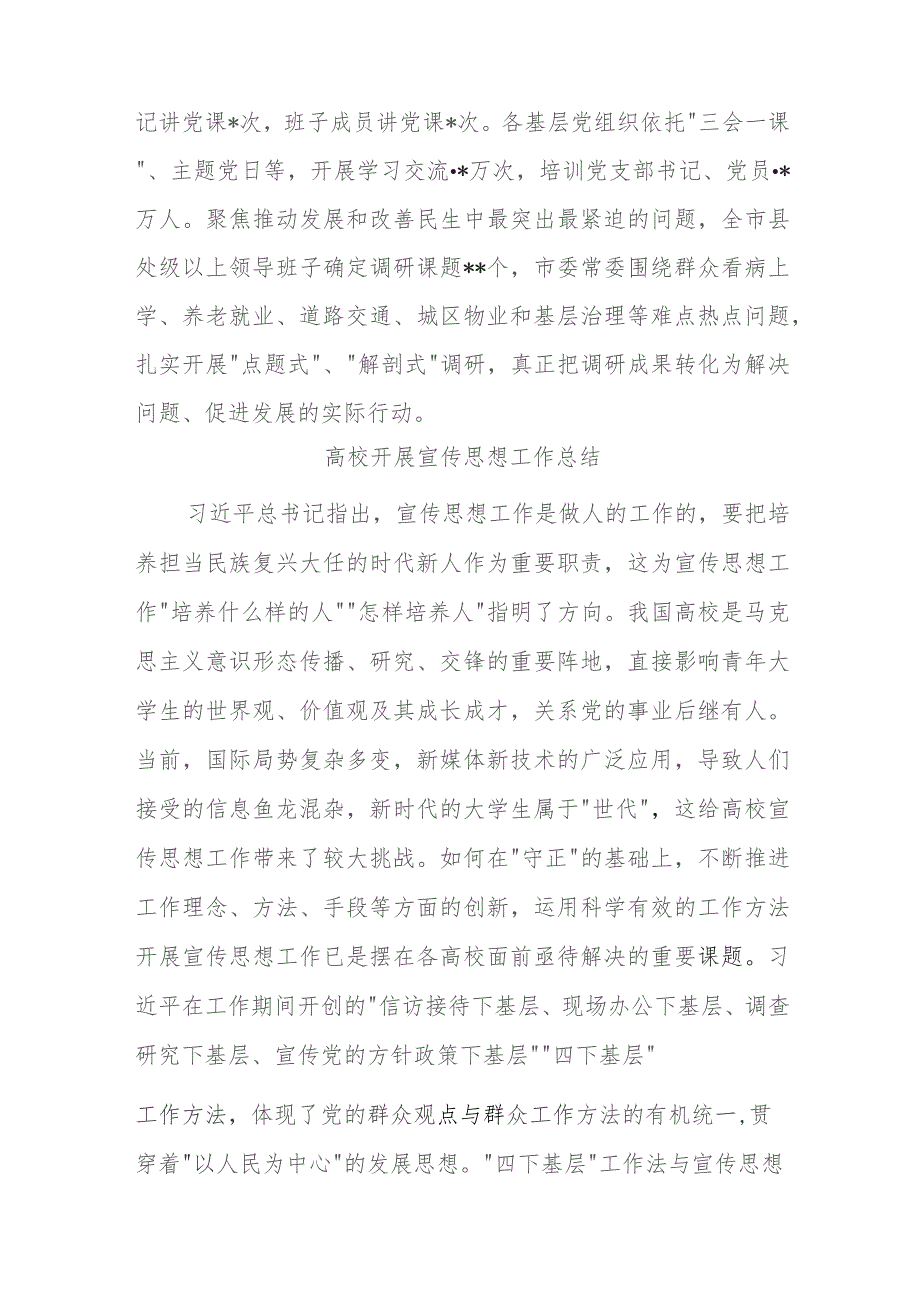 记讲党课*次，班子成员讲党课*次。各基层党组织依托"三会一课
"、主题党日等，开展学习交流·*万次，培训党支部书记、党员·*
万人。聚焦推动发展和改善民生中最突出最紧迫的问题，全市县
处级以上领导班子确定调研课题**个，市委常委围绕群众看病上
学、养老就业、道路交通、城区物业和基层治理等难点热点问题，
扎实开展"点题式"、"解剖式"调研，真正把调研成果转化为解决
问题、促进发展的实际行动。
高校开展宣传思想工作总结
习近平总书记指出，宣传思想工作是做人的工作的，要把培
养担当民族复兴大任的时代新人作为重要职责，这为宣传思想工
作"培养什么样的人""怎样培养人"指明了方向。我国高校是马克
思主义意识形态传播、研究、交锋的重要阵地，直接影响青年大
学生的世界观、价值观及其成长成才，关系党的事业后继有人。
当前，国际局势复杂多变，新媒体新技术的广泛应用，导致人们
接受的信息鱼龙混杂，新时代的大学生属于"世代"，这给高校宣
传思想工作带来了较大挑战。如何在"守正"的基础上，不断推进
工作理念、方法、手段等方面的创新，运用科学有效的工作方法
开展宣传思想工作已是摆在各高校面前亟待解决的重要课题。习
近平在工作期间开创的"信访接待下基层、现场办公下基层、调查
研究下基层、宣传党的方针政策下基层""四下基层"
工作方法，体现了党的群众观点与群众工作方法的有机统一,贯
穿着"以人民为中心"的发展思想。"四下基层"工作法与宣传思想